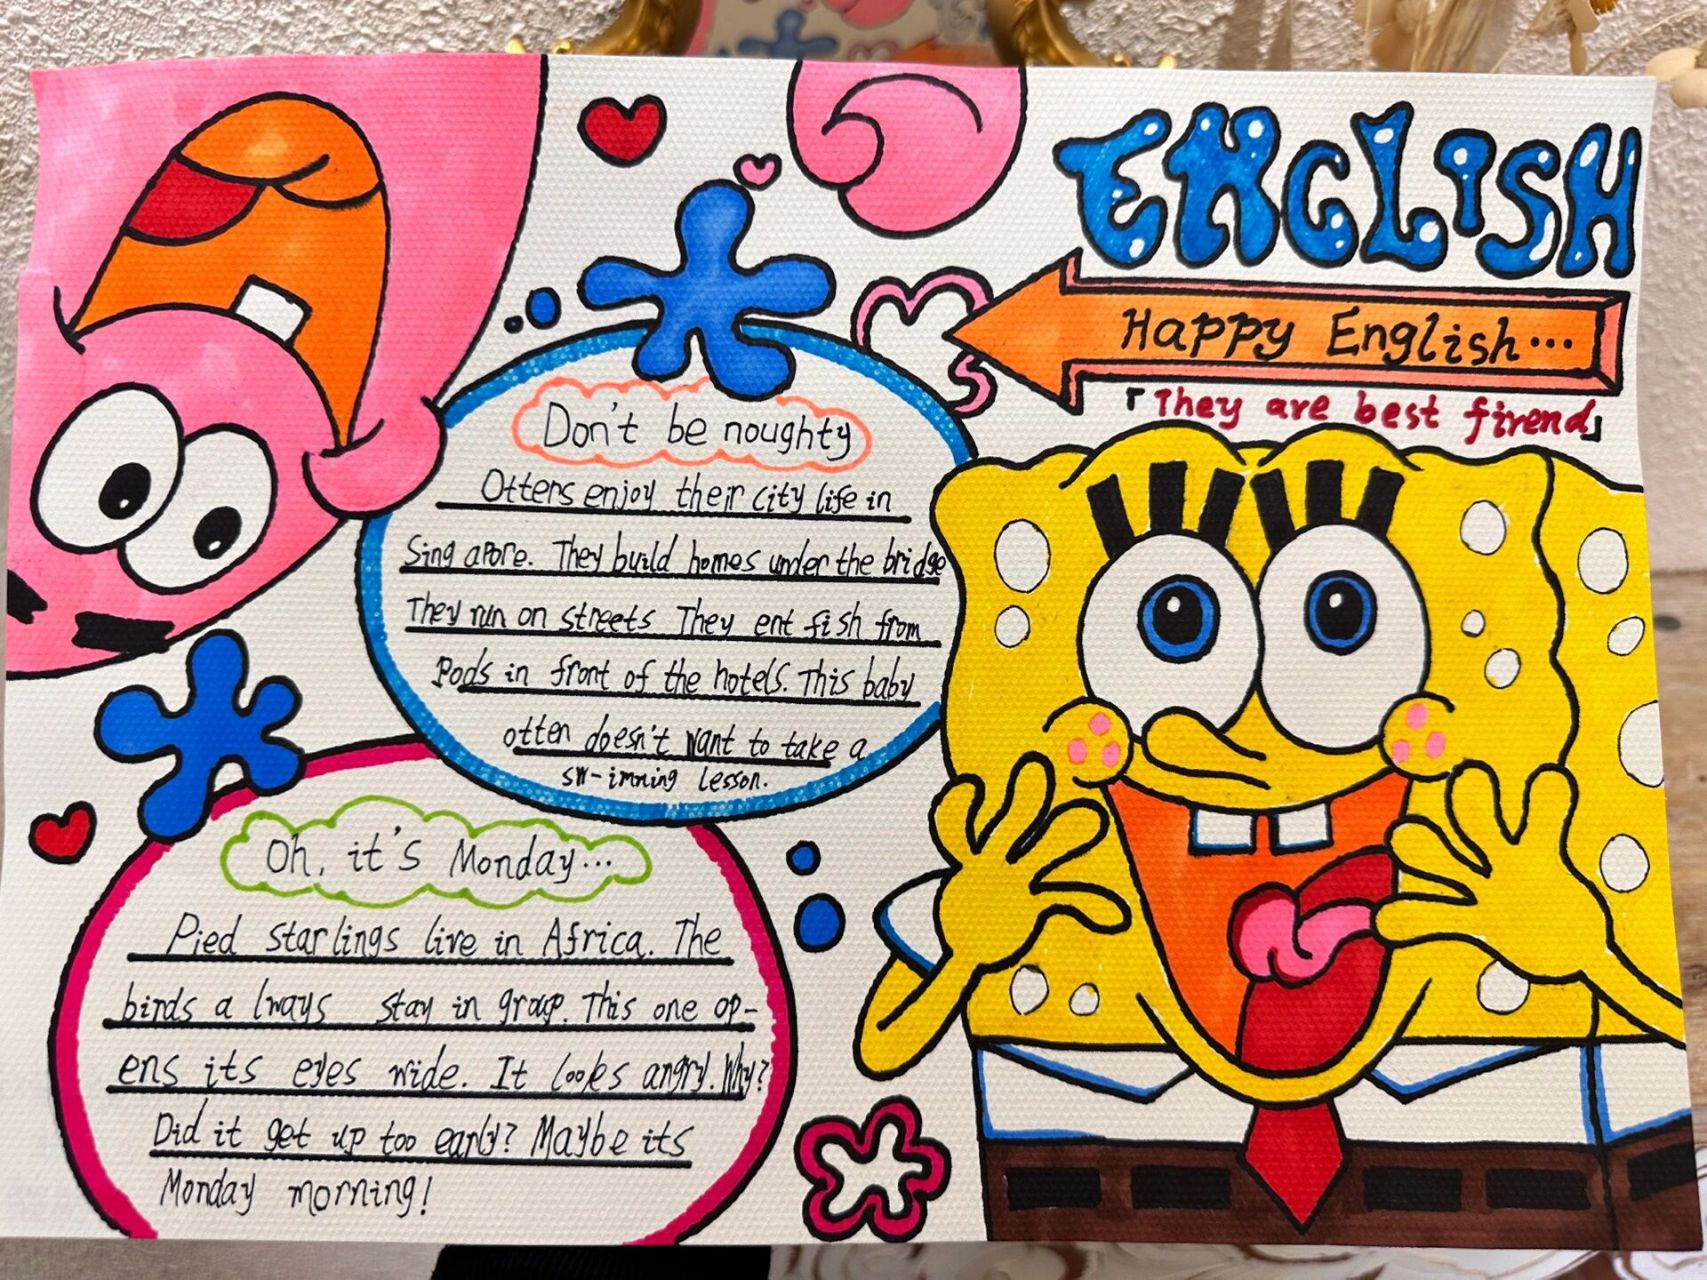 ENGLISH
Happy English...
「They are best firend」
Don't be noughty
Otters enjoy their city life in
Singapore. They build homes under the bridge
They run on streets They ent fish from
Pods in front of the hotels. This baby
otten doesn't want to take a
sw-imning lesson.
Oh, it's Monday...
Pied starlings live in Africa. The
birds a lways stay in group. This one op-
ens its eyes wide. It looks angry. Why?
Did it get up too early? Maybe its
Monday morning!